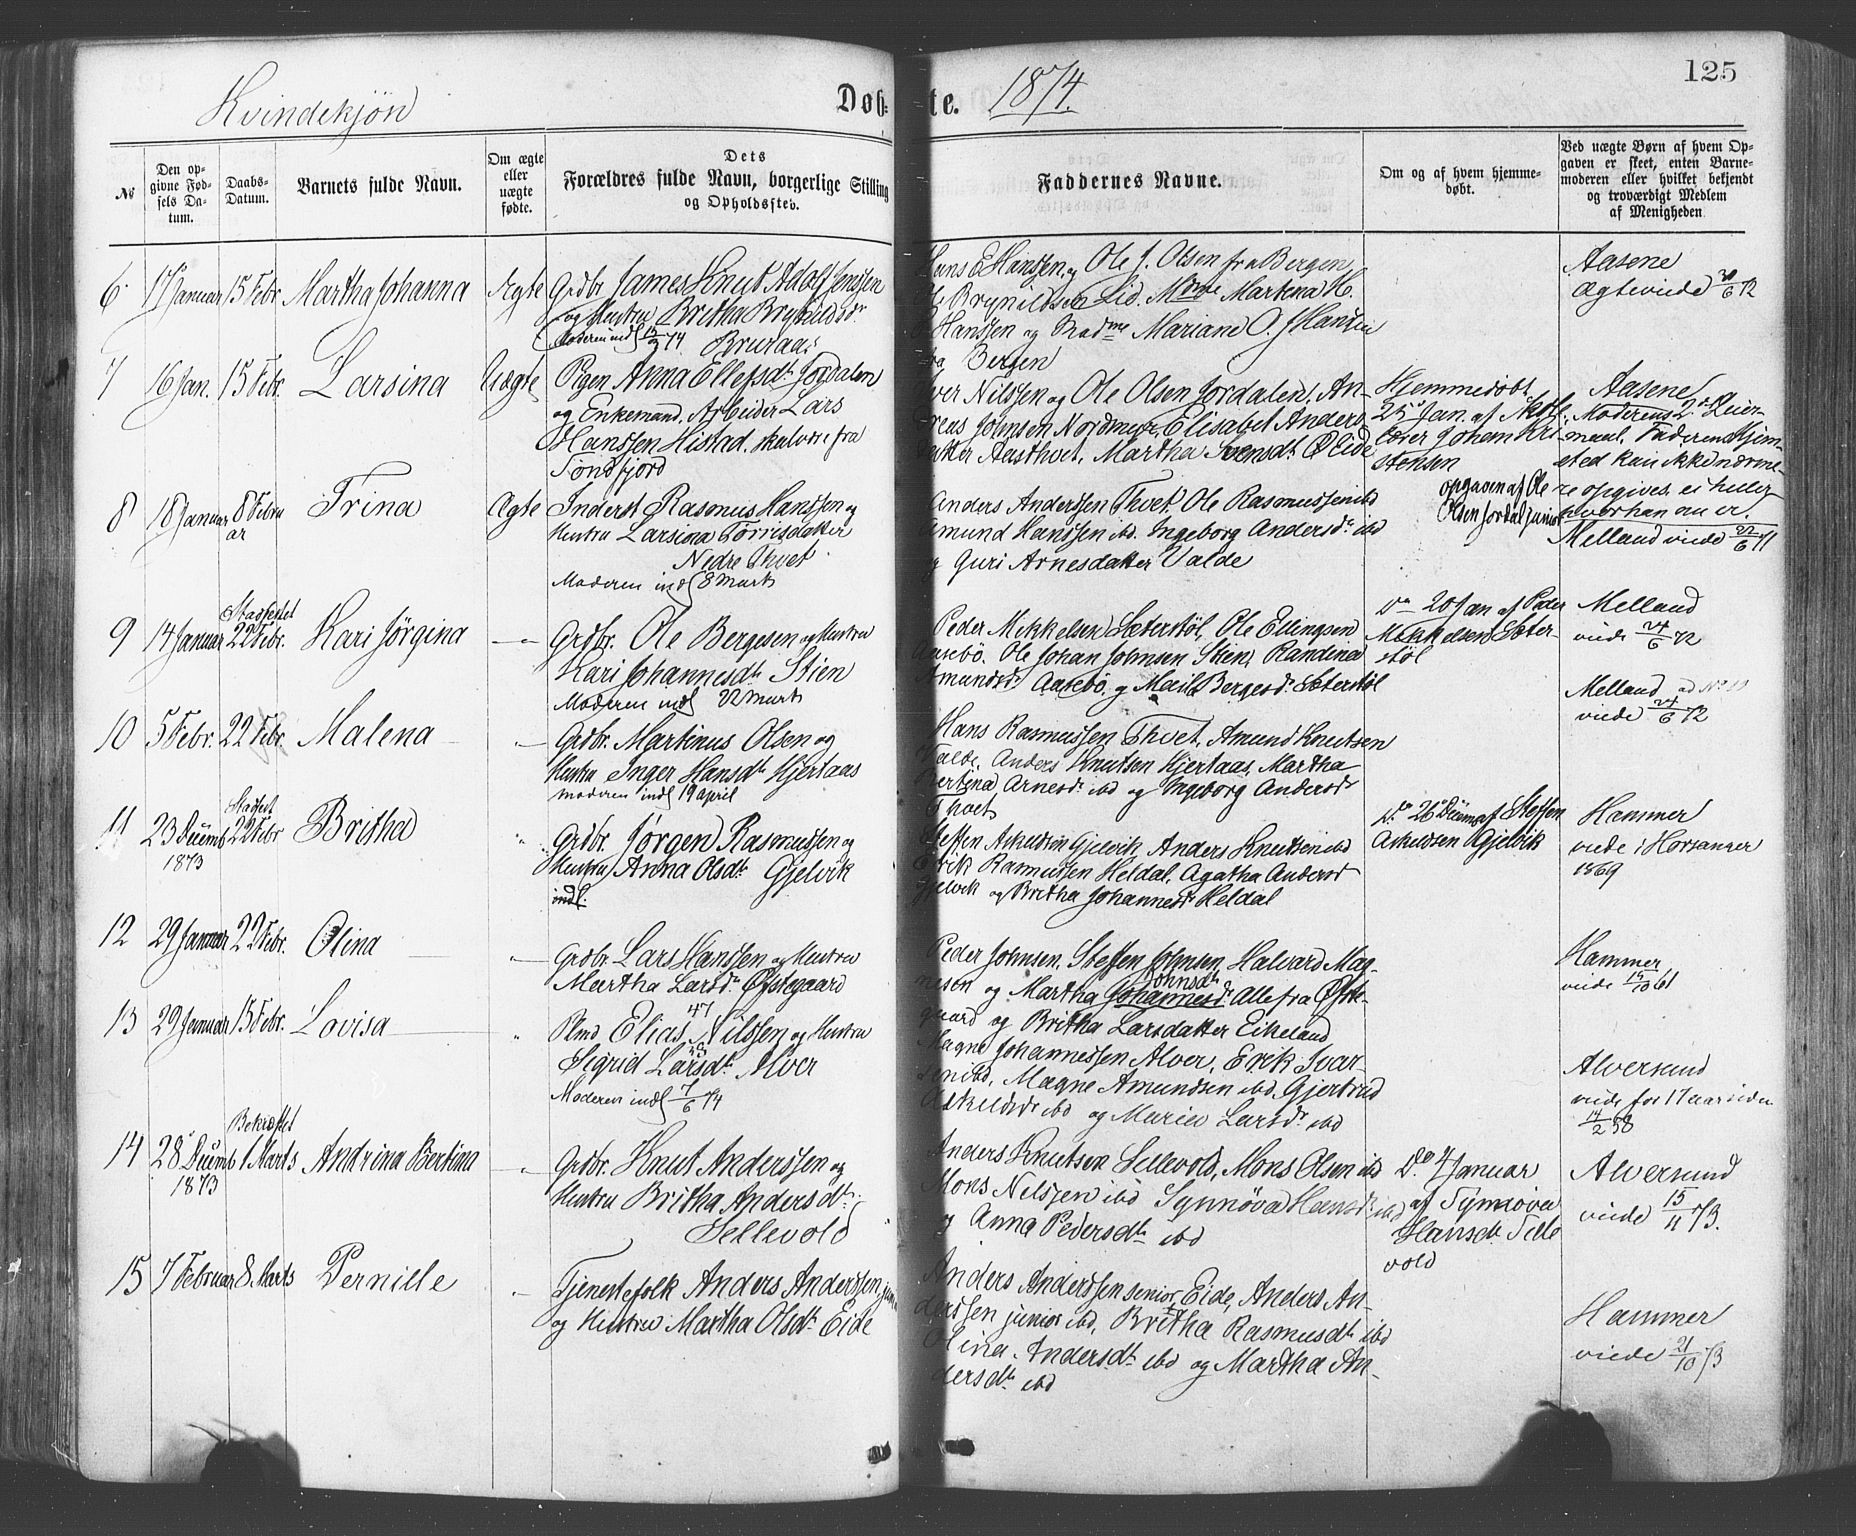 125
Kvindekjön
Døb- te. 1874.
No
Den op-
givne Fød-
sels Da-
tum.
Daabs-
Datum.
Barnets fulde Navn.
Om ægte
eller
uægte
fødte.
Dets
Forældres fulde Navn, borgerlige Stilling
og Opholdssted.
Faddernes Navne.
Om og af hvem hjemme-
døbt.
Ved uægte Børn af hvem Op-
gaven er skeet, enten Barne-
moderen eller hvilket bekjendt
og troværdigt Medlem
af Menigheden.
6. 17 Januar 15 Febr Martha Johanna Ægte
Grdbr James Knut Adolf Jenssen
og Hustru Britha Brynildsdr
Moderen indl 15/3 74 Bruraas
Hans E Hanssen, og Ole J. Olsen fra Bergen
Ole Brynildsen Lid. Mdme Martina H.
Hanssen og Madme Mariane O. J Hansen
fra Bergen
Aasene
Ægteviede 20/6 72
7 16 Jan. 15 Febr. Larsina Uægte
Pigen Anna Ellefsdt Jordalen
og Enkemand, Arbeider Lars
Hanssen Histad, skal være fra
Söndfjord
Iver Nilssen og Ole Olsen Jordalen, An-
dreas Johnsen Nordmyr, Elisabet Anders
datter Aasthvet, Martha Svensdt Øeide
Hjemmedöbt
25 Jan. af Skol-
lærer Johem Kri
stensen
opgaven af Ole
Olsen Jordal junior
Aasene
Moderens 2det Leier-
maal. Faderens Hjem-
sted kan ikke nærme
re opgives ei heller
hvor han nu er.
8 18 Januar 8 Febru
ar
Trina Ægte
Inderst Rasmus Hanssen og
Hustru Larsina Torrisdatter
Nedre Thvet
Moderen indl 8 Marts
Anders Anderssen Thvet. Ole Rasmussen ibd
Amund Hanssen ibd. Ingeborg Andersdr ibd
og Guri Arnesdatter Valde
Melland viede 22/6 71
9 14 Januar Stadfestet
22 Febr. Kari Jörgina — "
Grdbr. Ole Bergesen og Hustru
Kari Johannesdt Stien
Moderen indl 22 Marts
Peder Mikkelsen Sæterstöl, Ole Ellingsen
Aasebö. Ole Johan Johnsen Stien, Randina
Amundsdr Aasebö. og Mari Bergesdr Sæterstöl
Do 20 Jan af Peder
Mikkelsen Sæter-
stöl
Melland
viede 24/6 72
10 5 Febr. 22 Febr. Malena — "
Grdbr. Martinus Olsen og
Hustru Inger Hansdt Hjertaas
Moderen indl 19 april
Hans Rasmussen Thvet, Amund Knutsen
Valde. Anders Knutsen Hjertaas, Martha
Bertina Arnesdr ibd og Ingeborg Andersdr
Thvet
Melland ad No 10
viede 24/6 72
11 23 Decemb
1873
Stadfest
22 Febr
Britha "
Grdbr. Jörgen Rasmussen og
Hustru Anna Olsdt Gjelvik
indl.
Steffen Askeldsen Gjelvik Anders Knutsen ibd
Erik Rasmussen Heldal, Agatha Andersd
Gjelvik og Britha Johannesdr Heldal
Do 26 Decemb af Steffen
Askeldsen Gjelvik
Hammer
viede i Hosanger
1869
12 29 Januar 22 Febr. Olina — "
Grdbr Lars Hanssen og Hustru
Martha Larsdr Østegaard
Peder Johnsen, Steffen Johnsen, Halvard Mag-
nesen og Martha Johannesdr Johnsdt Alle fra Øste-
gaard og Britha Larsdatter Eikeland
Hammer
viede 15/10 61
13 29 Januar 15 Febr. Lovisa — "
Plmd Elias Nilssen 47 og Hustru
Sigrid Larsdt Alver
Moderen indl 7/6 74
Magne Johannessen Alver, Erik Ivar-
sen ibd, Magne Amundsen ibd, Gjertrud
Askeldsdr ibd og Marie Larsdr ibd
Alversund
viede for 17 aar siden
14/2 58
14 28 Decemb
1873
Bekræftet
1 Marts Andrina Bertina — "
Grdbr. Knut Anderssen og
Hustru Britha Andersdt
Sellevold
Anders Knutsen Sellevold, Mons Olsen ibd
Mons Nelssen ibd Synnöva Hansdr ibd
og Anna Pedersdt ibd
Do 4 Januar
af Synnöva
Hansdt Selle
vold
Alversund
viede 15/11 73.
15 7 Februar 8 Marts Pernille — "
Tjenestefolk Anders Anderssen, junr
og Hustru Martha Olsdt Eide
Anders Anderssen senior Eide, Anders An-
derssen junior ibd, Britha Rasmusdt ibd
Olina Andersdt ibd og Martha An-
dersdt ibd
Hammer
viede 21/10 73